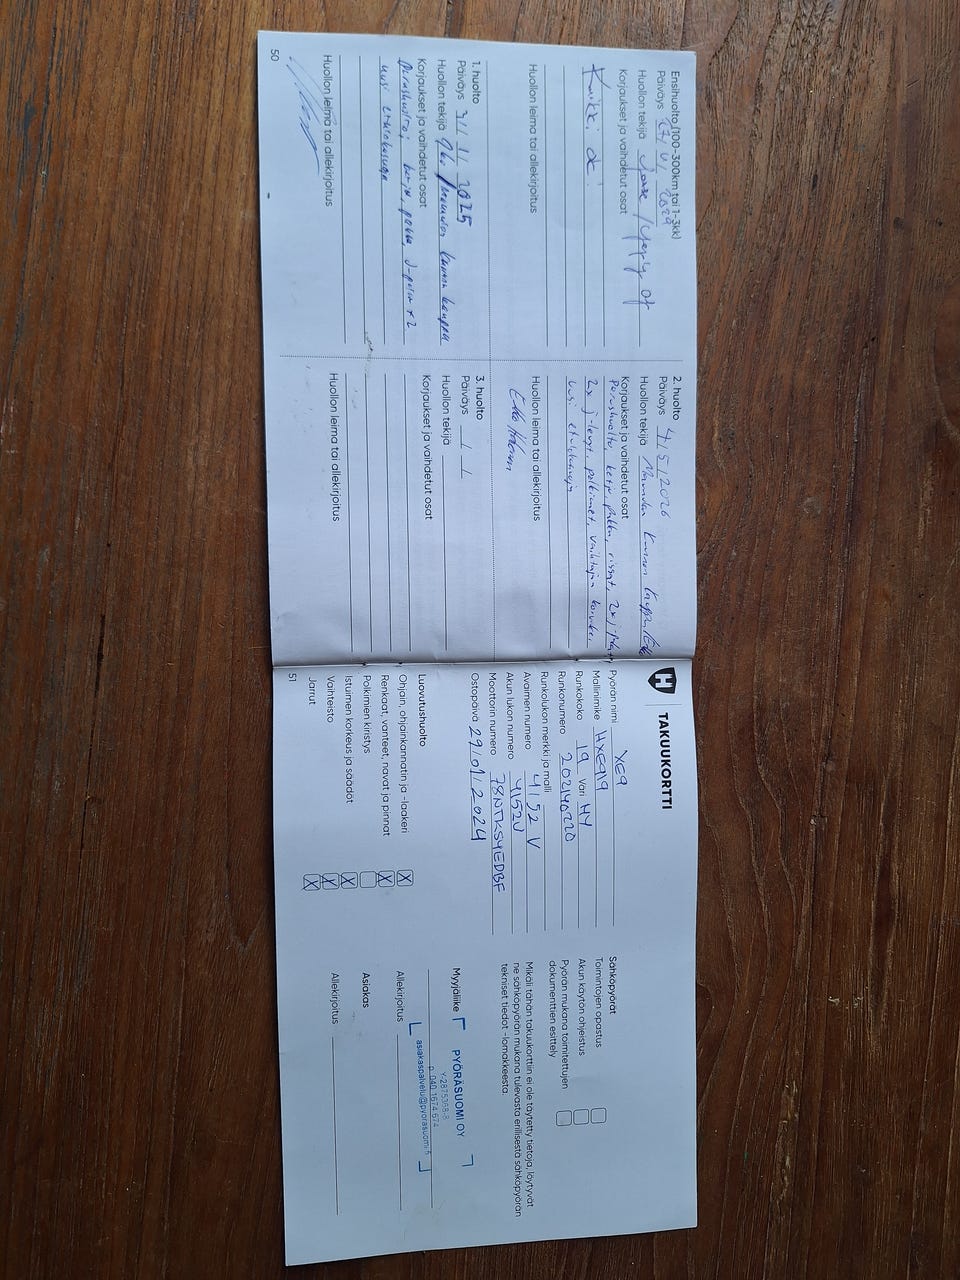 Ensihuolto (100-300km tai 1-3kk)
Päiväys
Huollon tekijä
Korjaukset ja vaihdetut osat
Kaikki ok!
Huollon leima tai allekirjoitus
1. huolto
Päiväys 3/11/2025
Huollon tekijä
Korjaukset ja vaihdetut osat
Perushuolto, ketju, pakka,
uusi
Huollon leima tai allekirjoitus
50
2. huolto
Päiväys 4/5/2026
Huollon tekijä
Korjaukset ja vaihdetut osat
Perushuolto, ketju, pakka, rissat,
polkimet, vaihtajan
uusi
Huollon leima tai allekirjoitus
3. huolto
Päiväys / /
Huollon tekijä
Korjaukset ja vaihdetut osat
Huollon leima tai allekirjoitus
H
TAKUUKORTTI
Pyörän nimi XE9
Mallinimike HXE919
Runkokoko 19 Väri HY
Runkonumero 202140220
Runkolukon merkki ja malli
Avaimen numero 4152 V
Akun lukon numero 4152V
Moottorin numero
Ostopäivä 29/01/2024
Luovutushuolto
Ohjain, ohjainkannatin ja -laakeri X
Renkaat, vanteet, navat ja pinnat X
Polkimien kiristys
Istuimen korkeus ja säädöt X
Vaihteisto X
Jarrut X
51
Sähköpyörät
Toimintojen opastus
Akun käytön ohjeistus
Pyörän mukana toimitettujen
dokumenttien esittely
Mikäli tähän takuukorttiin ei ole täytetty tietoja, löytyvät
ne sähköpyörän mukana tulevasta erillisestä sähköpyörän
tekniset tiedot -lomakkeesta.
Myyjäliike
PYÖRÄSUOMI OY
p. 040 1674 674
asiakaspalvelu@pyorasuomi.fi
Allekirjoitus
Asiakas
Allekirjoitus